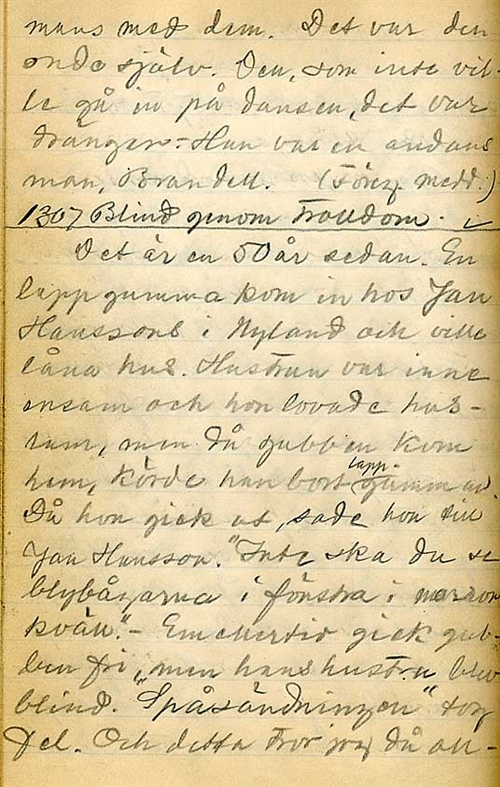 mans med dem. Det var den
onde själv. Den, som inte vil-
le gå in på dansen, det var
drängen. Han var en andans
man, Brandell. (Föreg. medd.)
1307 Blind genom trolldom. i
Det är en 50 år sedan. En
lappgumma kom in hos Jan
Hanssons i Nyland och ville
låna hus. Hustrun var inne
ensam och hon lovade hus-
rum, men då gubben kom
hem, körde han bort lapp-gumman
Då hon gick ut, sade hon till
Jan Hansson. "Inte ska du se
blybågarna i fönstra i morron
kväll." - Emellertid gick gub-
ben fri, men hans hustru blev
blind. "Spåsändningen" tog
fel. Och detta tror jag då all-